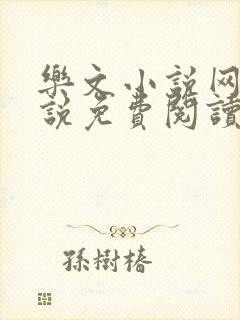 樂文小説网
説免費閱讀
孫樹椿